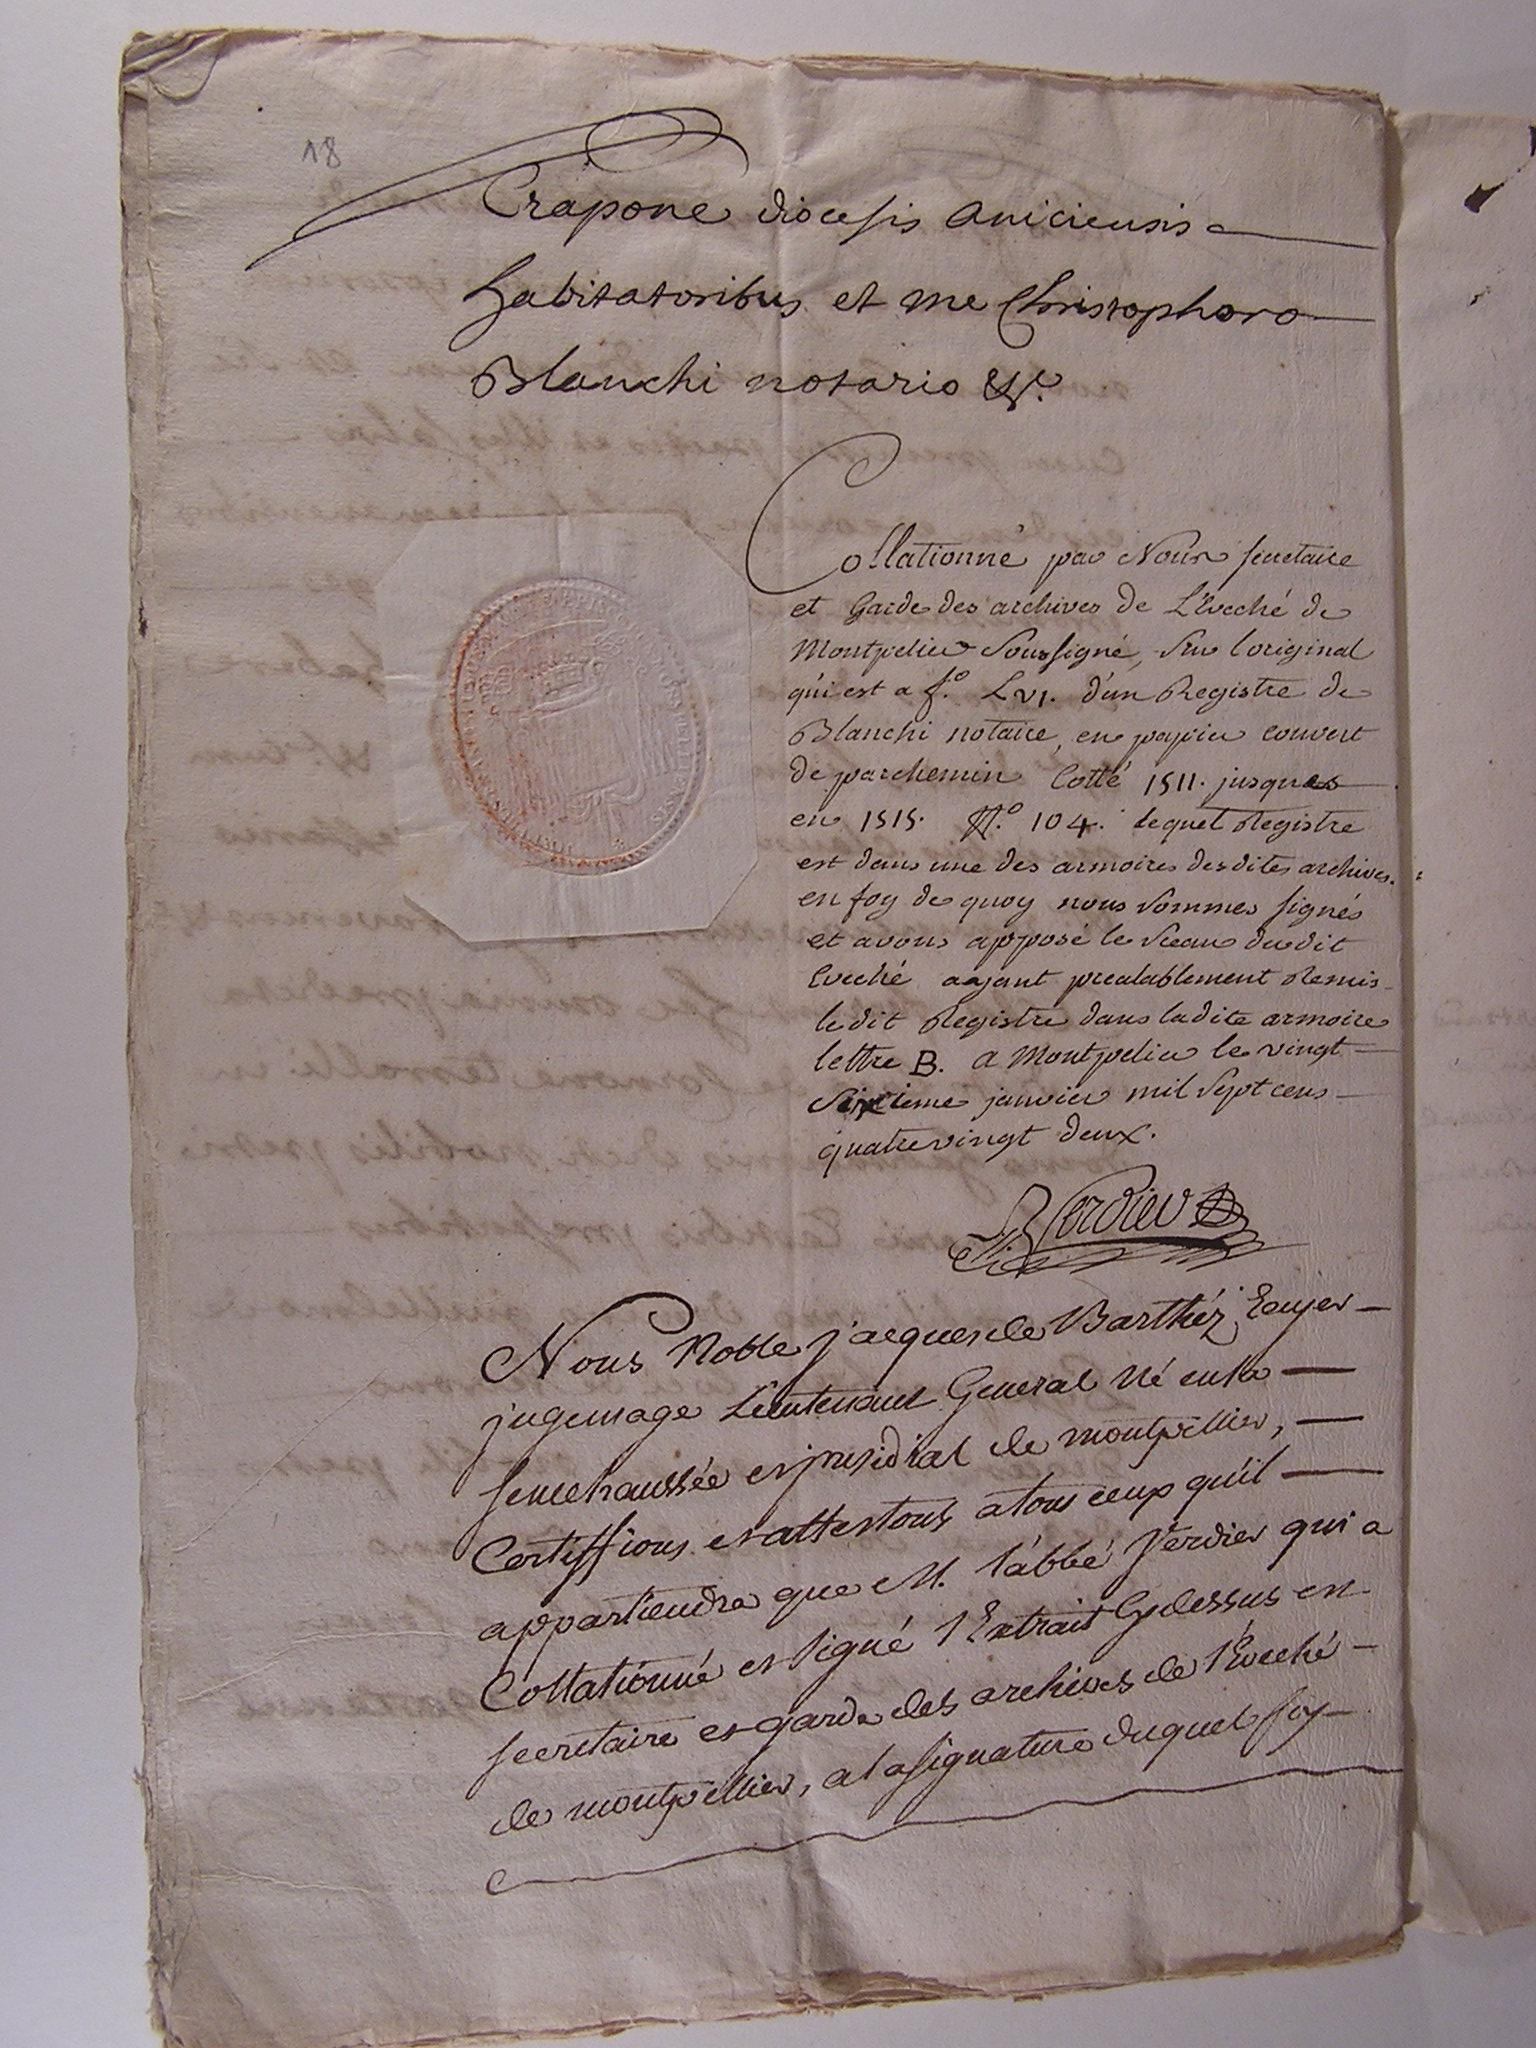 18
Crapone diocesis aniciensis
habitatoribus et me Christophoro
Blanchi notario &c.
Collationné par Nous secretaire
et Garde des archives de L'Eveché de
Montpelier soussigné, sur l'original
qui est a f.º LVI. d'un Registre de
Blanchi notaire, en papier couvert
de parchemin Cotté 1511. jusques
en 1515. N.º 104. lequel Registre
est dans une des armoires desdites archives.
en foy de quoy nous sommes signés
et avons apposé le sceau du dit
Eveché aÿant prealablement Remis
le dit Registre dans ladite armoire
lettre B. a Montpelier le vingt
sixieme janvier mil sept cens
quatrevingt deux.
Verdier
Nous Noble jacques de Barthéz Ecuyer
jugemage Lieutenant General Né en la
senechaussée et presidial de montpellier,
Certiffions et attestons a tous ceux qu'il
appartiendra que M. l'abbé Verdier qui a
Collationné et signé l'Extrait Cydessus en
secretaire et garde des archives de l'Eveché
de montpellier, a la signature duquel foy